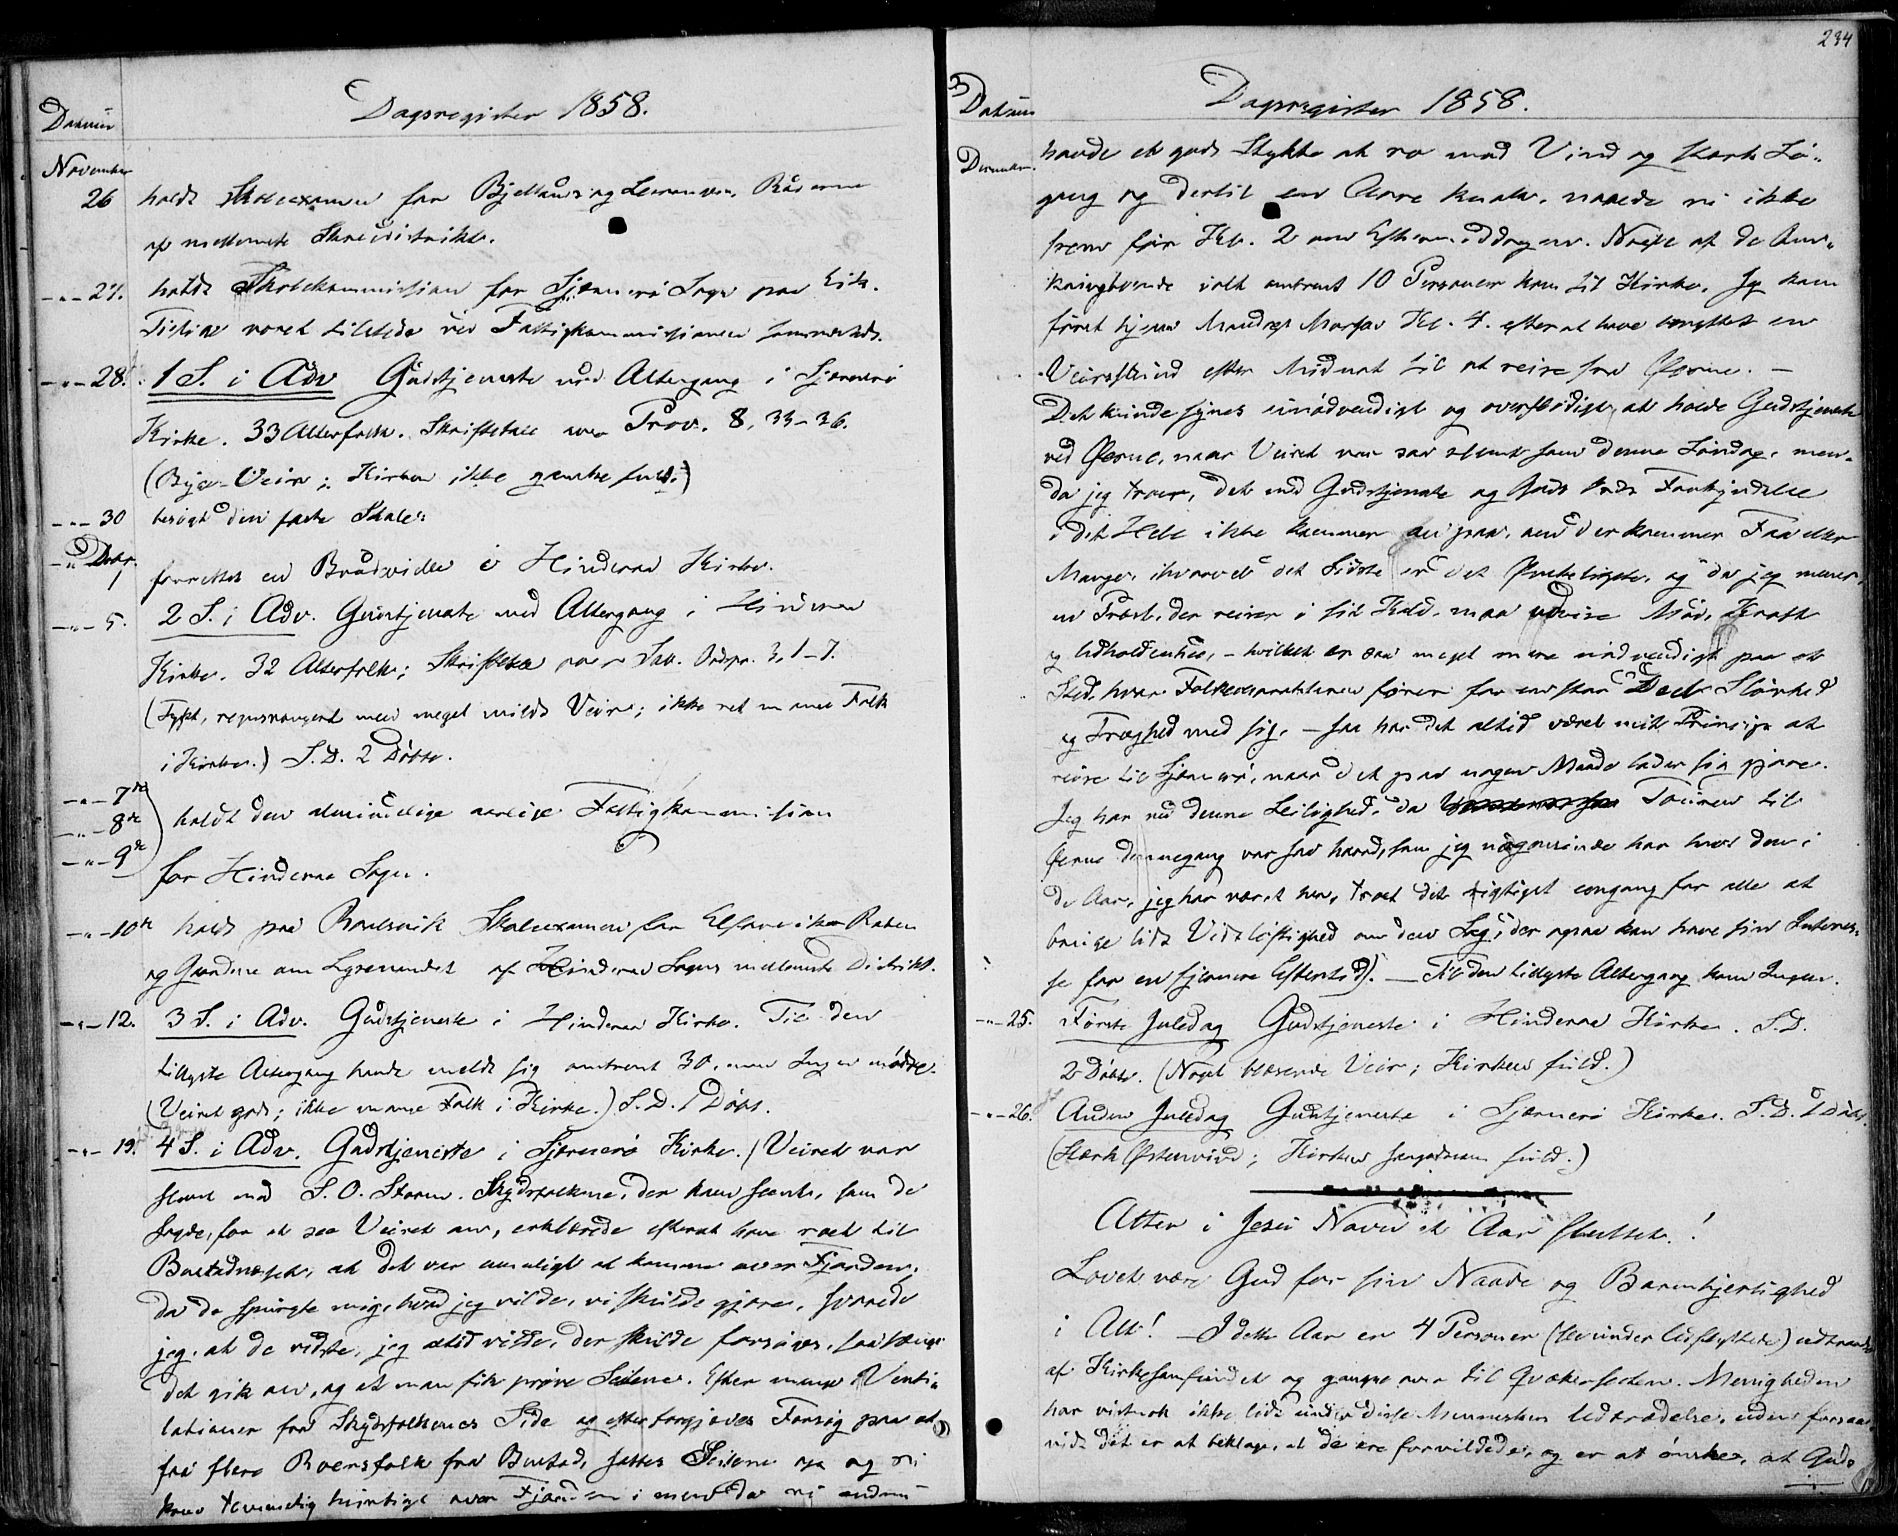 Datum
Dagsregister 1858.
November
26 holdt Skoleexamen for
af mellemste Skoledistrikt.
-"-27. holdt Skolekommission for Sjærnerø Sogn paa Eik.
været tilstede ved Fattigkommissionen sammesteds.
-"-28. 1 S. i Adv Gudstjeneste med Altergang i Sjærnerø
Kirke. 33 Alterfolk. Skriftetale over Prov. 8, 33-36.
(Byge-Veir; Kirken ikke ganske fuld.)
-"-30 besøgt den faste Skole.
-"- Decbr. 1 forrettet en Brudevielse i Hinderaa Kirke.
-"-5. 2 S. i Adv. Gudstjeneste med Altergang i Hinderaa
Kirke. 32 Alterfolk; Skriftetale over Sal. Ordspr. 3, 1-7.
(Tykt, regnvangent med meget mildt Veir; ikke ret mange Folk
i Kirken.) S.D. 2 Døbte.
-"-7de
-"-8de holdt den almindelige aarlige Fattigkommission
-"-9de
for Hinderaa Sogn.
-"-10de holdt paa Skoleexamen for
og Gaardene om af Hinderaa Sogns mellemste Distrikt.
-"-12. 3 S. i Adv. Gudstjeneste i Hinderaa Kirke. Til den
tillyste Altergang havde meldt sig omtrent 30, men Ingen mødte.
(Veiret godt; ikke mange Folk i Kirke.) S.D. 1 Døbt.
-"-19. 4 S. i Adv. Gudstjeneste i Sjærnerø Kirke. (Veiret var
slemt med S.O. Storm. Skydsfolkene, der kom seent, som de
sagde, for at see Veiret an, erklærede efterat have roet til
Bustadnæset, at det var umuligt at komme over Fjorden;
da de spurgte mig, hvad jeg vilde, vi skulde gjøre, svarede
jeg, at de vidste, jeg altid vilde, der skulde forsøges, saalænge
det gik an, og at man fik prøve Seilene. Efter mange Venti-
lationer fra Skydsfolkenes Side og efter forgjæves Forsøg paa at
faa flere Roersfolk fra Bustad, sattes Seilene op og vi
kom temmelig hurtigt over Fjorden; men da vi endnu
234
Datum
Dagsregister 1858.
December
havde et godt Stykke at ro mod Vind og stærk Sø-
gang og dertil en Aare knak, naaede vi ikke
frem før Kl. 2 om Eftermiddagen. Nogle af de
ialt omtrent 10 Personer kom til Kirke. Jeg kom
først hjem Mandags Morgen Kl. 4. efter at have benyttet en
Veirstund efter Midnat til at reise fra Øerne. -
Det kunde synes unødvendigt og overflødigt, at holde Gudstjeneste
ved Øerne, naar Veiret var saa slemt som denne Søndag, men
da jeg troer, det med Gudstjeneste og Guds Ords Forkyndelse
i det Hele ikke kommer an paa, om der kommer Faa eller
Mange, ihvorvel det Sidste er det Ønskeligste, og da jeg mener,
en Præst, der reiser i sit Kald, maa udvise Mod, Kraft
og Udholdenhed, - hvilket er saa meget mere nødvendigt paa et
Sted, hvor Folkekarakteren fører for en stor Deel Sløvhed
og Træghed med sig, - saa har det altid været mit Princip at
reise til Sjærnerø, naar det paa nogen Maade lader sig gjøre.
Jeg har ved denne Leilighed, da Touren til
Øerne dennegang var saa haard, som jeg nogensinde har havt den i
de Aar, jeg har været her, troet det rigtigst engang for alle at
bruge lidt Vidtløftighed om den Sag, der ogsaa kan have sin Interes-
se for en fjernere Eftertid). - Til den tillyste Altergang kom Ingen.
-"-25. Første Juledag Gudstjeneste i Hinderaa Kirke. S.D.
2 Døbte. (Noget blæsende Veir; Kirken fuld.)
-"-26. Anden Juledag Gudstjeneste i Sjærnerø Kirke. S.D. 1 Døbt.
(Stærk Østenvind; Kirken fuld.)
Atter i Jesu Navn et Aar sluttet!
Lovet være Gud for sin Naade og Barmhjertighed
i Alt! - I dette Aar er 4 Personer udtraadte
af Kirkesamfundet og gangne over til Qvækersecten. Menigheden
har vistnok ikke lidt under disse Menneskers Udtrædelse, uden forsaa-
vidt det er at beklage, at de ere forvildede, og er at ønske, at Gud